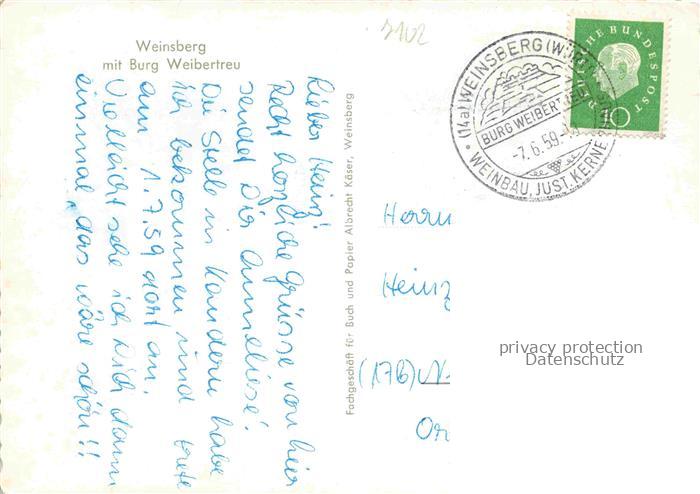 Weinsberg
mit Burg Weibertreu
7102
Lieber Heinz!
Recht herzliche Grüsse von hier
sendet Dir Anneliese!
Die Stelle in Kandern habe
ich bekommen und trete
am 1.7.59 dort an.
Vielleicht sehe ich Dich dann
einmal, das wäre schön!!
Fachgeschäft für Buch und Papier Albrecht Käser, Weinsberg
(14a) WEINSBERG (WÜ
BURG WEIBERT
-7.6.59.
WEINBAU, JUST. KERNER
HE BUNDESPOST
10
Herrn
Heinz
(17b)
privacy protection
Datenschutz